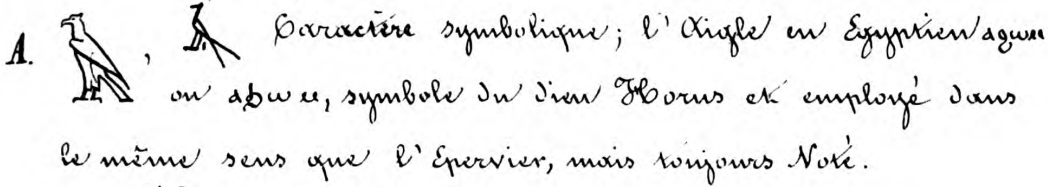 A. 𓄿, 𓄿 Caractère symbolique; l'Aigle en Egyptien ⲁϧⲱⲙ
ou ⲁϦⲱⲙ, symbole du dieu Horus et employé dans
le même sens que l'Epervier, mais toujours Noté.